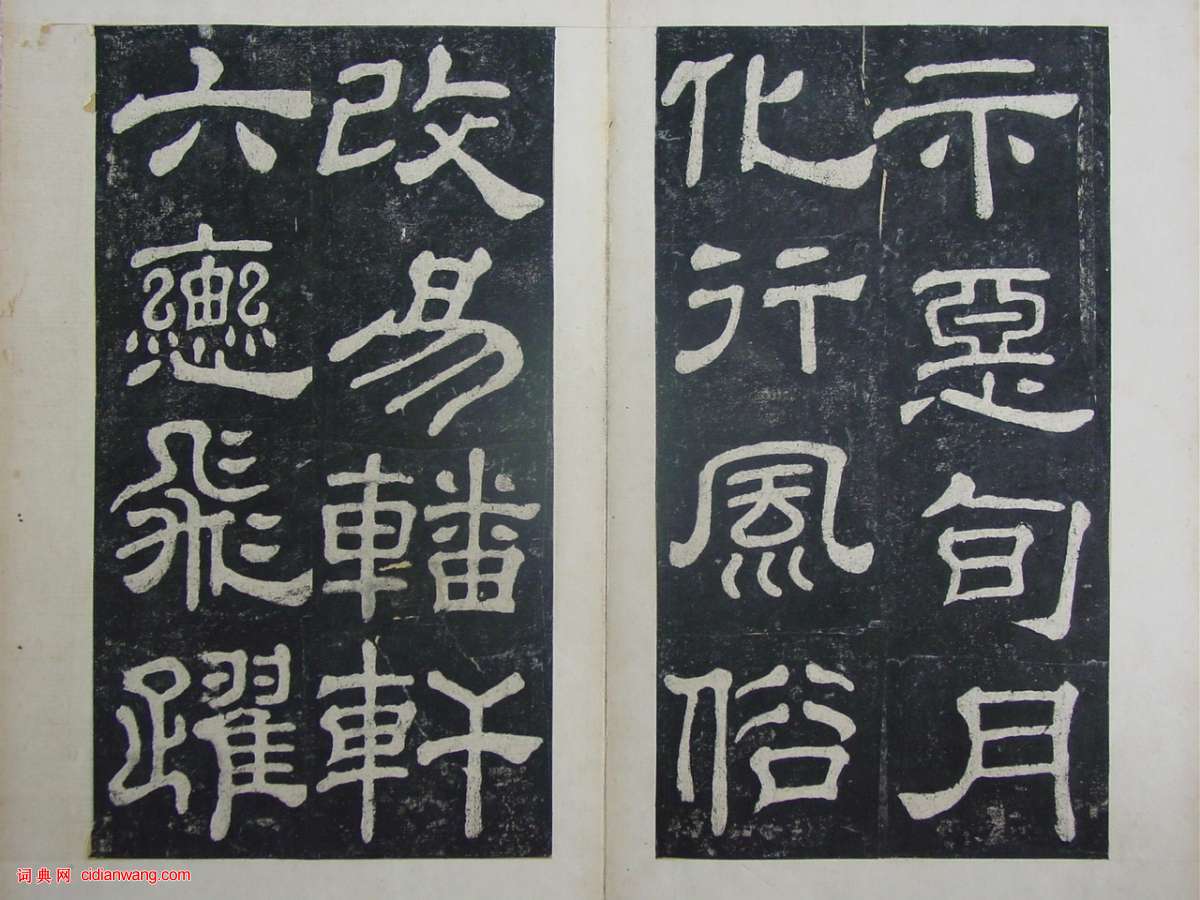 示惡旬月
化行風俗
改易轓軒
六轡飛躍
词典网 cidianwang.com